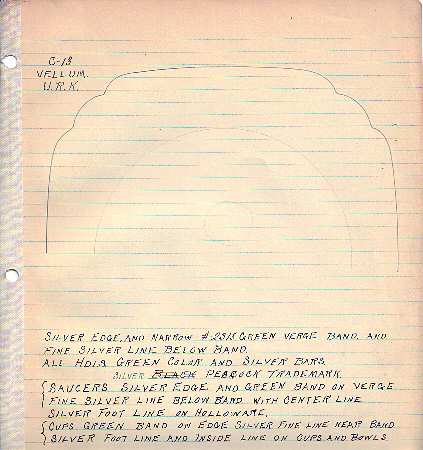 C-13
VELLUM.
U.R.K.
SILVER EDGE, AND NARROW GREEN VERGE BAND, AND
FINE SILVER LINE BELOW BAND.
ALL HDLS GREEN COLOR AND SILVER BARS
SILVER BLACK PEACOCK TRADEMARK
SAUCERS SILVER EDGE AND GREEN BAND ON VERGE
FINE SILVER LINE BELOW BAND WITH CENTER LINE
SILVER FOOT LINE ON HOLLOWARE.
CUPS GREEN BAND ON EDGE SILVER FINE LINE NEAR BAND
SILVER FOOT LINE AND INSIDE LINE ON CUPS AND BOWLS.